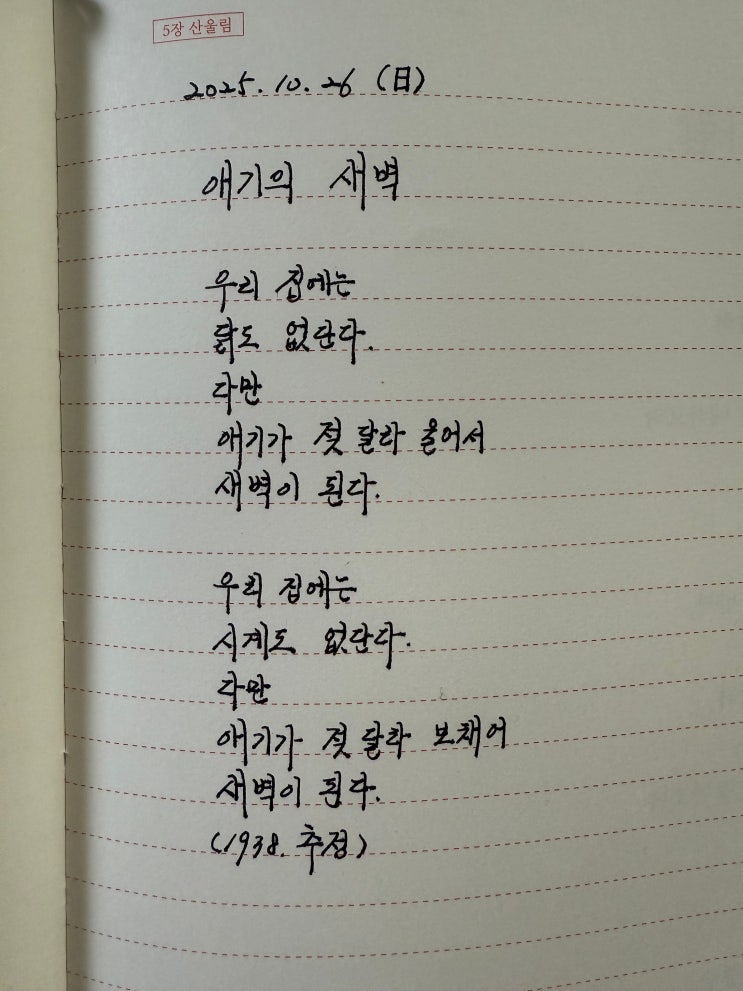 5장 산울림
2025. 10. 26 (日)
애기의 새벽
우리 집에는
닭도 없단다.
다만
애기가 젖 달라 울어서
새벽이 된다.
우리 집에는
시계도 없단다.
다만
애기가 젖 달라 보채어
새벽이 된다.
(1938. 추정)